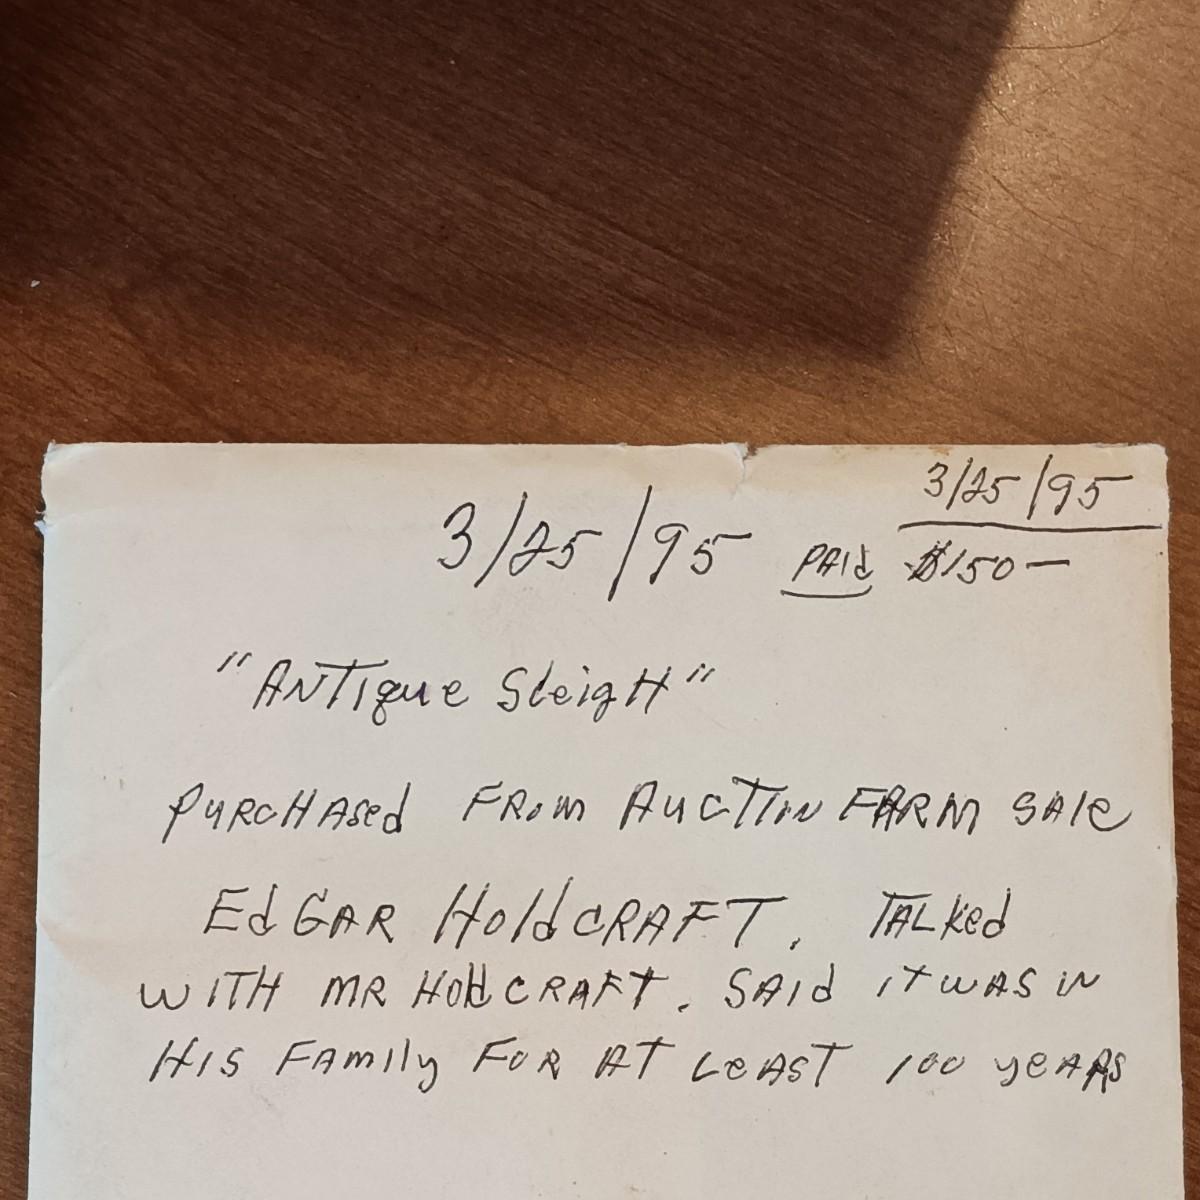 3/25/95
3/25/95 PAId $150—
"ANTIque SleigH"
PURCHAsed FRoM AucTIoN FARM SAle
EdGAR HoldCRAFT. TALked
WITH MR HoldCRAFT. SAId ITWAS IN
HIS FAMIly FOR AT LeAST 100 yeARS